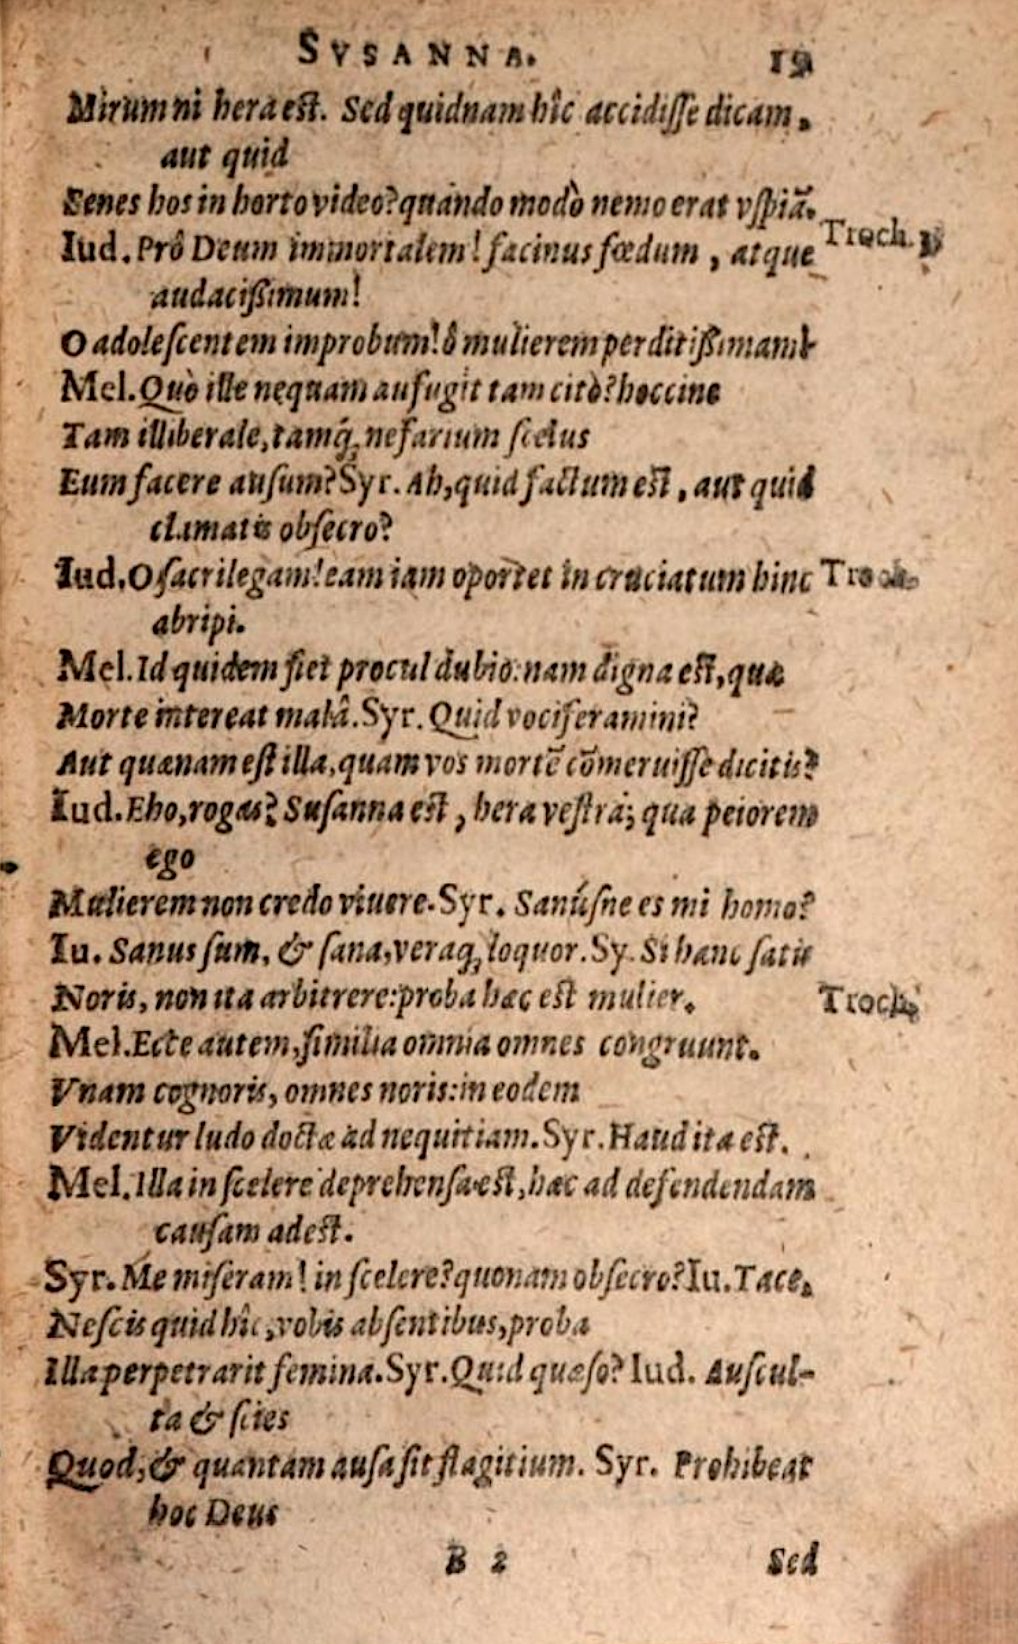 SVSANNA. 19
Mirum ni hera est. Sed quidnam hîc accidisse dicam,
aut quid
Senes hos in horto video? quando modò nemo erat vspiã.
Iud. Prô Deum immortalem! facinus fœdum, atque Troch.
audacißimum!
O adolescentem improbum! ô mulierem perditißimam!
Mel. Quò ille nequam aufugit tam citò? hoccine
Tam illiberale, tamq́; nefarium scelus
Eum facere ausum? Syr. Ah, quid factum est, aut quid
clamatis obsecro?
Iud. O sacrilegam! eam iam oportet in cruciatum hinc Troch.
abripi.
Mel. Id quidem fiet procul dubio: nam digna est, quæ
Morte intereat malâ. Syr. Quid vociferamini?
Aut quænam est illa, quam vos mortẽ cõmeruisse dicitis?
Iud. Eho, rogas? Susanna est, hera vestra; qua peiorem
ego
Mulierem non credo viuere. Syr. Sanúsne es mi homo?
Iu. Sanus sum, & sana, veraq; loquor. Sy. Si hanc satis
Noris, non ita arbitrere: proba hæc est mulier. Troch.
Mel. Ecce autem, similia omnia omnes congruunt.
Vnam cognoris, omnes noris: in eodem
Videntur ludo doctæ ad nequitiam. Syr. Haud ita est.
Mel. Illa in scelere deprehensa est, hæc ad defendendam
causam adest.
Syr. Me miseram! in scelere? quonam obsecro? Iu. Tace,
Nescis quid hîc, vobis absentibus, proba
Illa perpetrarit femina. Syr. Quid quæso? Iud. Auscul-
ta & scies
Quod, & quantam ausa sit flagitium. Syr. Prohibeat
hoc Deus
B 2 Sed